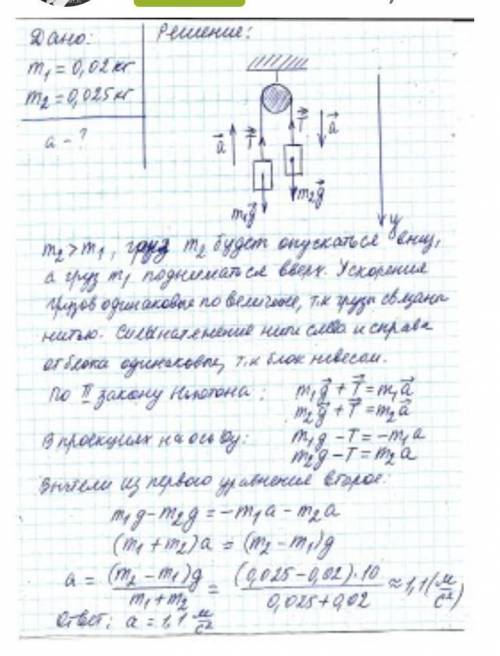 Дано:
Решение:
m₁ = 0,02 кг
m₂ = 0,025 кг
a - ?
a⃗ T⃗ T⃗ a⃗
m₂g⃗
m₁g⃗
y
m₂ > m₁, груз m₂ будет опускаться вниз,
а груз m₁ подниматься вверх. Ускорения
грузов одинаковые по величине, т.к грузы связаны
нитью. Силы натяжение нити слева и справа
от блока одинаковы, т.к блок невесом.
По II закону Ньютона: m₁g⃗ + T⃗ = m₁a⃗
m₂g⃗ + T⃗ = m₂a⃗
В проекциях на ось Oy: m₁g - T = -m₁a
m₂g - T = m₂a
Вычтем из первого уравнения второе:
m₁g - m₂g = -m₁a - m₂a
(m₁ + m₂)a = (m₂ - m₁)g
a = (m₂ - m₁)g / m₁ + m₂ = (0,025 - 0,02)·10 / 0,025 + 0,02 ≈ 1,1 (м/с²)
Ответ: a = 1,1 м/с²